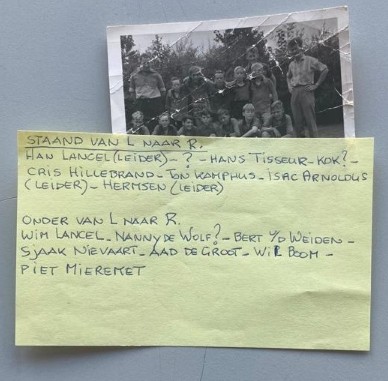 STAAND VAN L NAAR R.
HAN LANCEL (LEIDER) - ? - HANS TISSEUR - KOK? -
CRIS HILLEBRAND - TON KAMPHUS - ISAC ARNOLDUS
(LEIDER) - HERMSEN (LEIDER)
ONDER VAN L NAAR R.
WIM LANCEL - NANNY DE WOLF? - BERT V/D WEIDEN -
SJAAK NIEVAART - AAD DE GROOT - WIL BOOM -
PIET MIEREMET